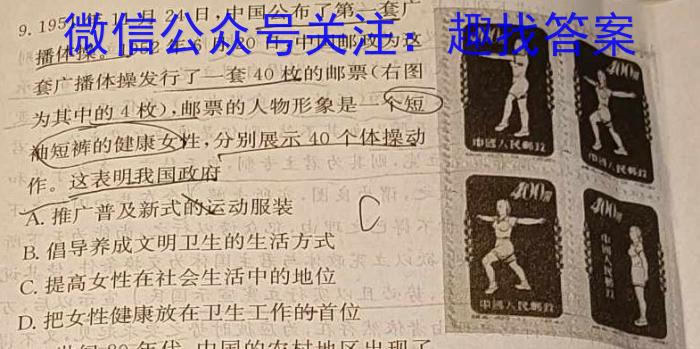 9.195 年11月24日,中国公布了第一套广
微信公众号关注:趣找答案
播体操。1952年6月20日,中国邮政为这
套广播体操发行了一套40枚的邮票(右图
为其中的4枚),邮票的人物形象是一个短
袖短裤的健康女性,分别展示40个体操动
作。这表明我国政府
A.推广普及新式的运动服装
B.倡导养成文明卫生的生活方式
C.提高女性在社会生活中的地位
D.把女性健康放在卫生工作的首位
C
400圆
中国人民邮政
400圆
中国人民邮政
400圆
中国人民邮政
400圆
中国人民邮政
年代,中国的农村地区出现了